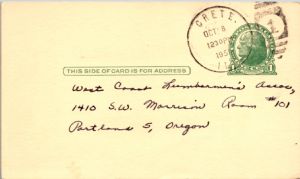 CRETE.
OCT 8
1230PM
THIS SIDE OF CARD IS FOR ADDRESS
West Coast Lumbermen's Assoc,
1410 S.W. Morrison Room #101
Portland 5, Oregon